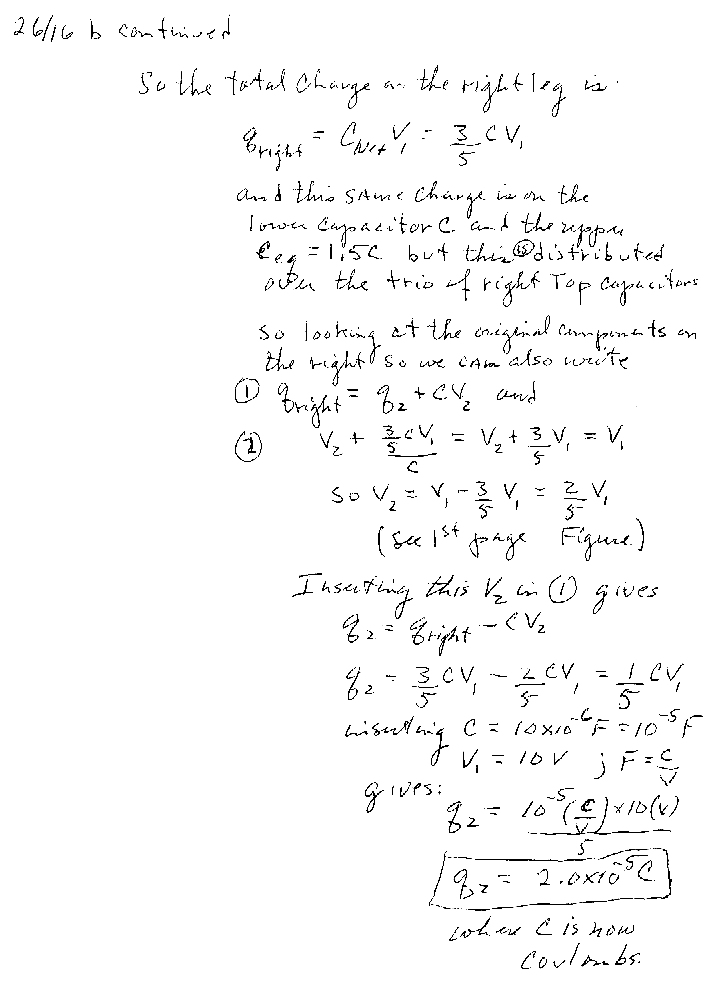 26/16 b continued
So the total charge on the right leg is:
q_right = C_Net V₁ = 3/5 C V₁
and this same charge is on the
lower capacitor C and the upper
C_eq = 1.5C but this is distributed
over the trio of right Top capacitors
So looking at the original components on
the right so we can also write
① q_right = q₂ + CV₂ and
② V₂ + (3/5 CV₁)/C = V₂ + 3/5 V₁ = V₁
So V₂ = V₁ - 3/5 V₁ = 2/5 V₁
(see 1st page Figure)
Inserting this V₂ in ① gives
q₂ = q_right - CV₂
q₂ = 3/5 CV₁ - 2/5 CV₁ = 1/5 CV₁
inserting C = 10x10⁻⁶ F = 10⁻⁵ F
V₁ = 10 V ; F = C/V
gives:
q₂ = (10⁻⁵ (C/V) x 10(V))/5
q₂ = 2.0x10⁻⁵ C
where C is now
Coulombs.